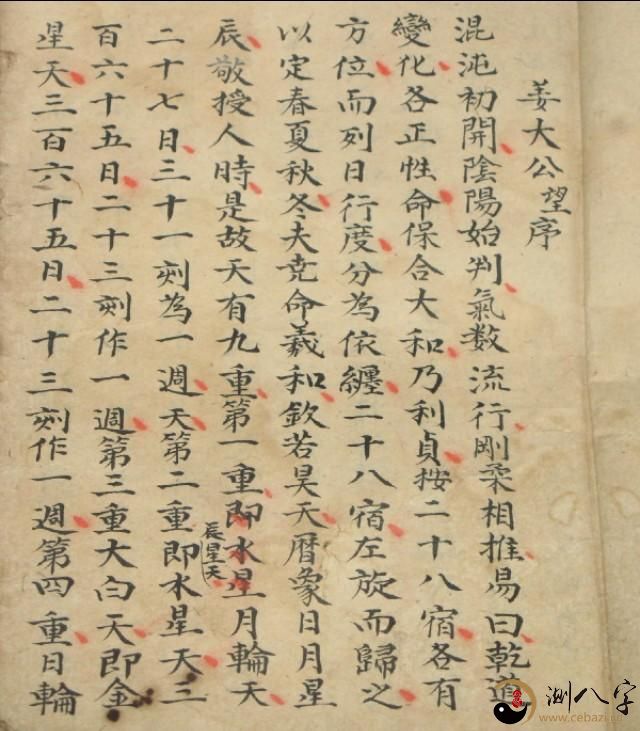 姜大公望序
混沌初開陰陽始判氣数流行剛柔相推易曰乾道
變化各正性命保合大和乃利貞按二十八宿各有
方位而列日行度分為依纏二十八宿左旋而歸之
以定春夏秋冬夫尭命羲和欽若昊天暦象日月星
辰敬授人時是故天有九重第一重即水星月輪天
辰星天
二十七日三十一刻為一週天第二重即水星天三
百六十五日二十三刻作一週第三重大白天即金
星天三百六十五日二十三刻作一週第四重日輪
測八字